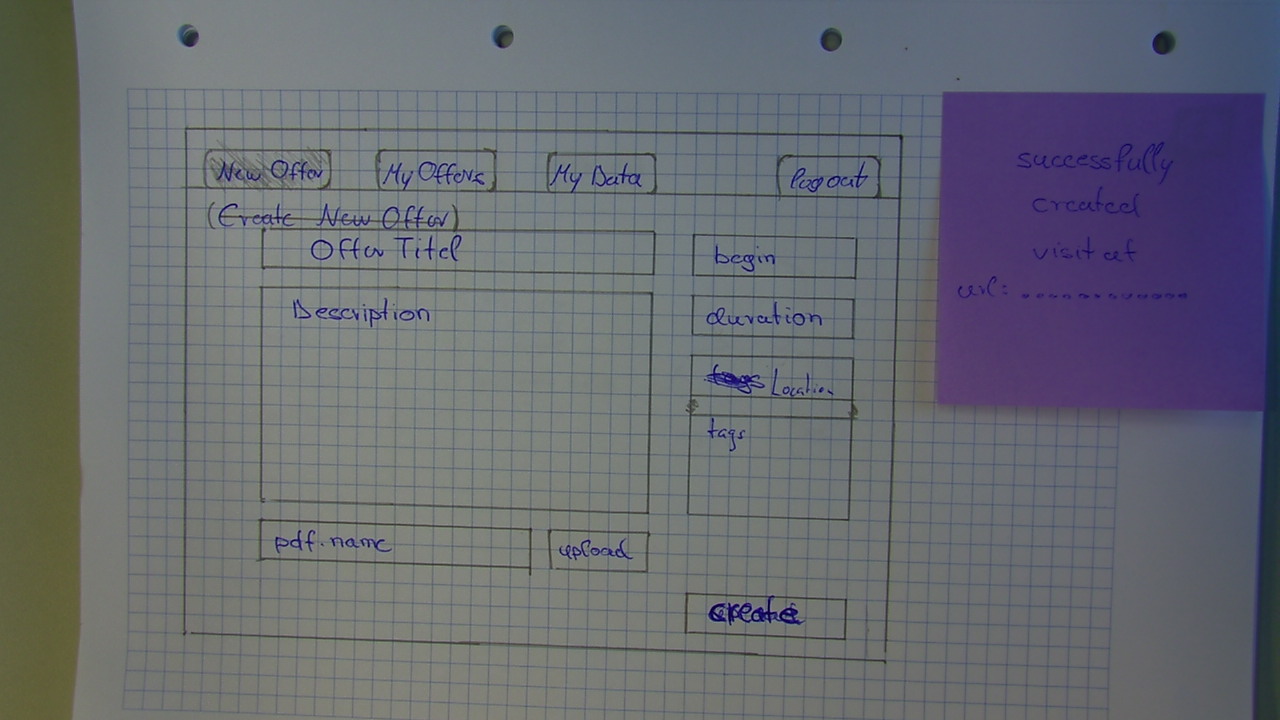 New Offer My Offers My Data logout
(Create New Offer)
Offer Titel
begin
Description
duration
Location
tags
pdf.name
upload
create
successfully
created
visit at
url: .............